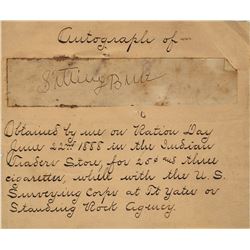 Autograph of—
Sitting Bull
Obtained by me on Ration Day
June 22nd 1888 in the Indian
Traders Store, for 25¢ and three
cigarettes, while with the U.S.
Surveying Corps at Ft Yates or
Standing Rock Agency.